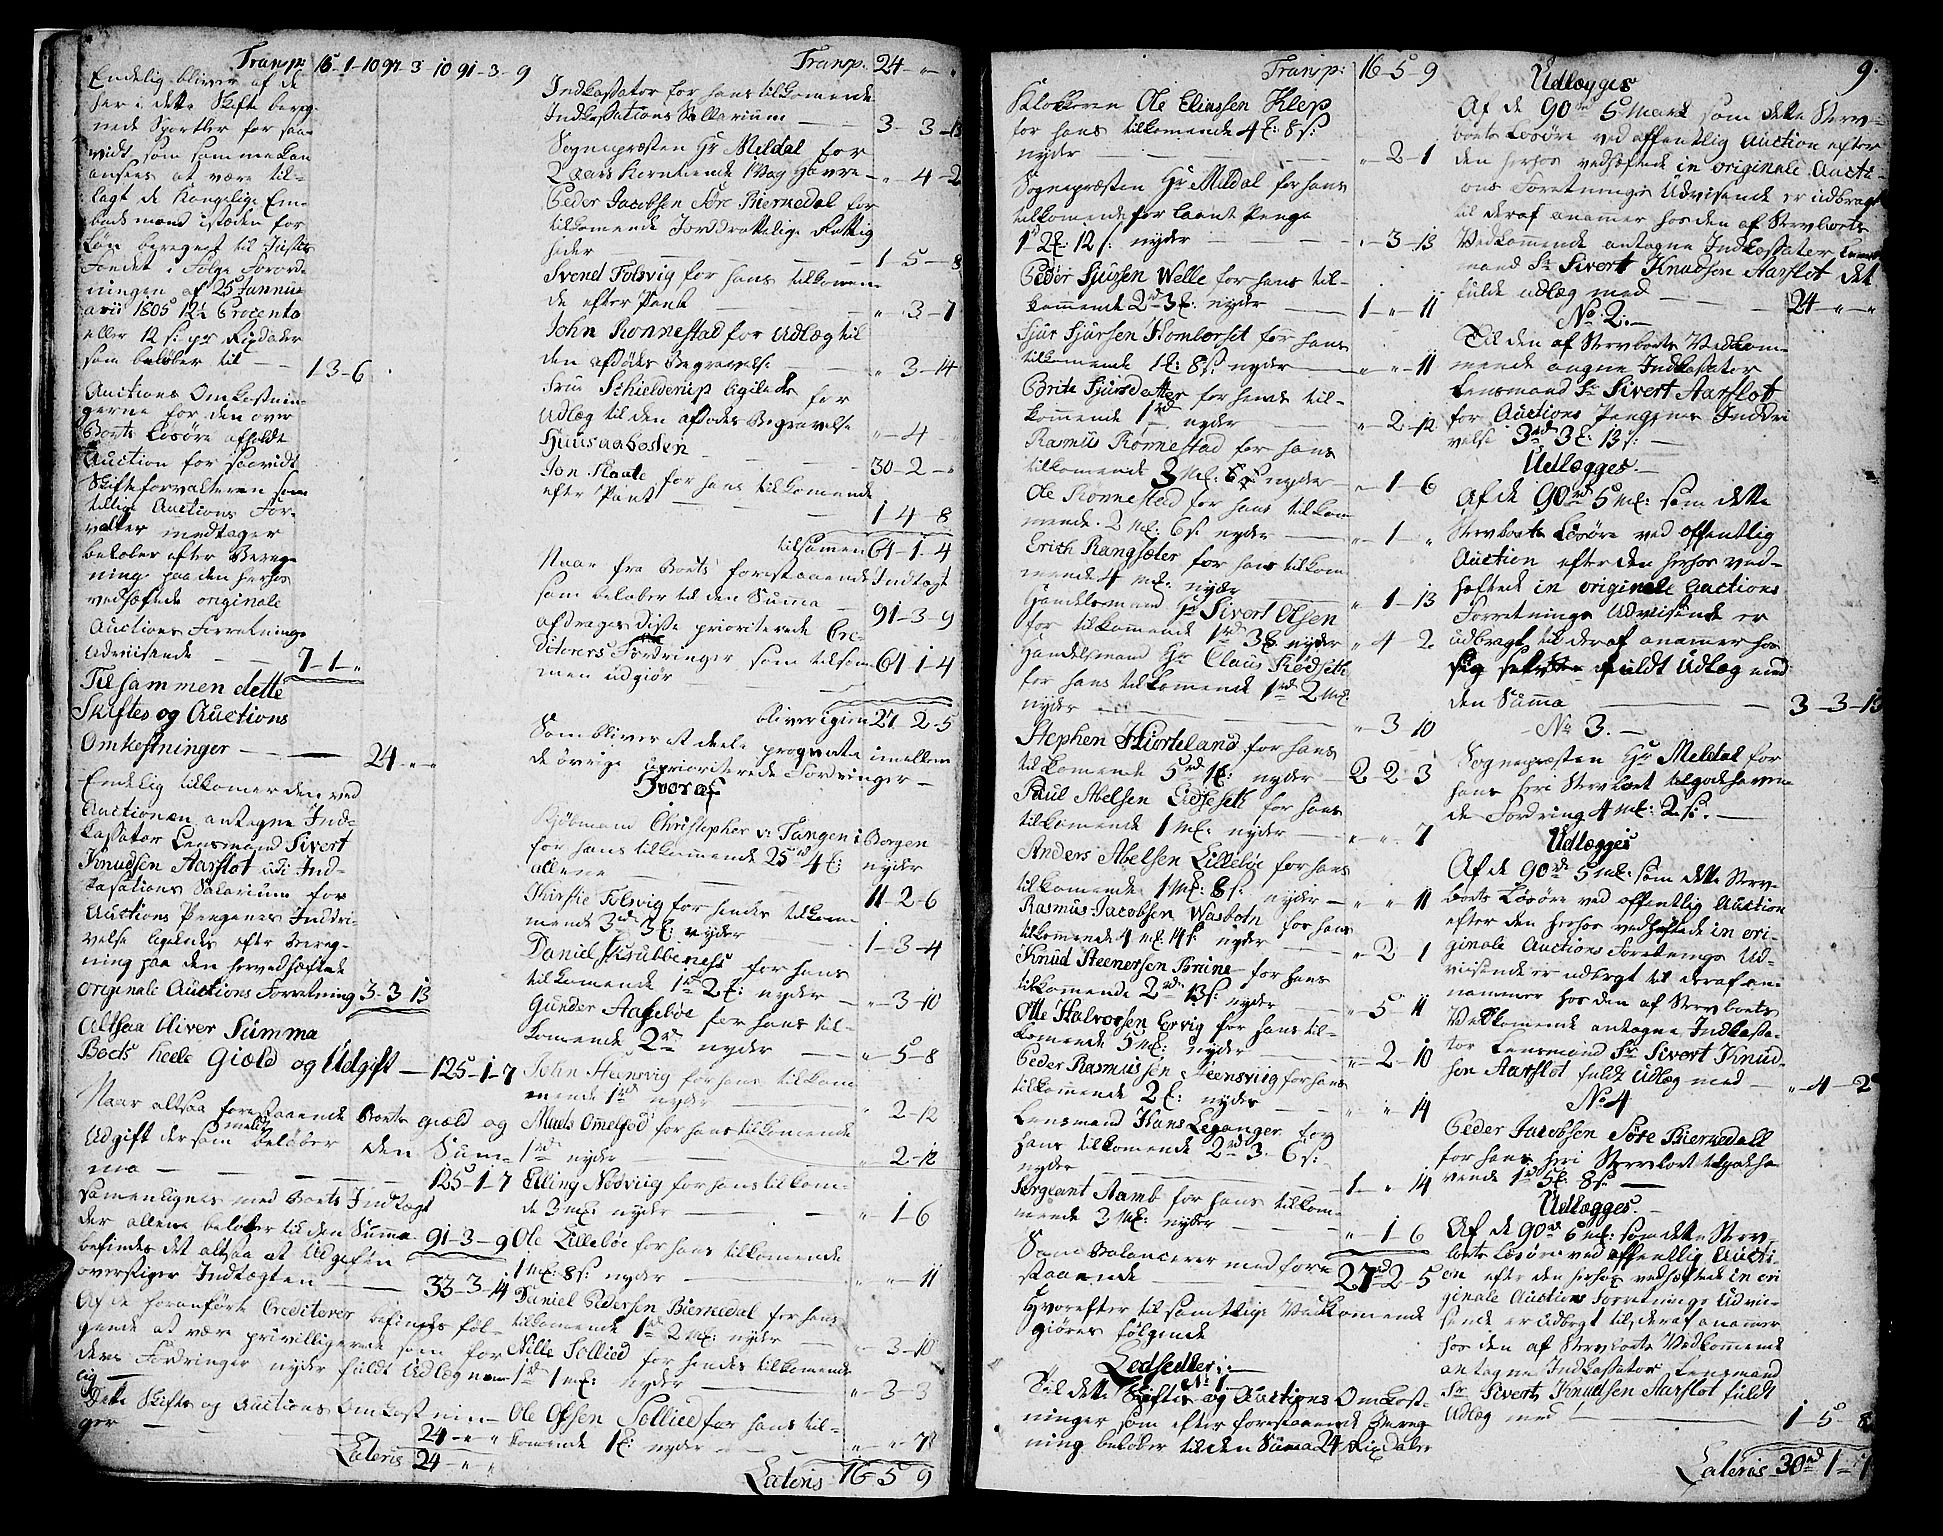 Transp: 15-1-10 97-3 10 91-3-9
Endelig bliver af de
her i dette Skifte bereg-
nede Sportler for saa-
vidt som sammekan
ansees at være til-
lagt de Kongelige Em-
beds mænd istæden for
Løn beregnet til Justits
Fondet i Følge Forord-
ningen af 25 Janu-
arii 1805 12½ Procento
eller 12 s: pr Rigsdaler
som beløber til — 1 3-6
Auctions Omkostnin-
gerne for den over
Boets Løsøre afholdte
Auction for saavidt
Skifteforvalteren som
tillige Auctions For-
valter modtager
beløber efter Bereg-
ning paa den herhos
vedhæftede originale
Auctions Forretnings
Udviisende — 7-1-"
Tilsammen dette
Skiftes og Auctions
Omkostninger — 24-"-"
Endelig tilkomer den ved
Auctionen antagne Ind-
kassator Lensmand Sivert
Knudsen Aarflot udi Ind-
kasations Salarium for
Auctions Pengenes Inddri-
velse ligeledes efter Bereg-
ning paa den hervedhæftede
originale Auctions Forretning 3-3 13
Altsaa bliver Summa
Boets heele Giæld og Udgift — 125-1-7
Naar altsaa forestaaende Boets giæld og
Udgift der som meldt beløber den Sum-
ma — 125-1-7
samenlignes med Boets Indtægt
der allene beløber til den Summa 91-3-9
befindes det altsaa at Udgiften
overstiger Indtægten — 33-3-14
Af de foranførte Creditorer befindes føl-
gende at være privilligerede som for
deres Fordringer nyder fuldt Udlæg nem-
lig —
Dette Skiftes og Auctions Omkostnin-
ger — 24-"-"
Lateris 24-"-"
Transp: 24-"-"
Indkassator for hans tilkomende
Indkassations Sallarium — 3-3-13
Sognepræsten Hr Meldal for
2 aars Korntiende 1 Vog Havre — "-4-2
Peder Jacobsen Søre Bierkedal for
tilkomende Jorddrottelige Rettig
heder — 1-5-8
Svend Folsvig for hans tilkomen-
de efter Pant — "-3-7
John Rønnestad for Udlæg til
den afdødes Begravelse — "-3-14
Frue Schielderup ligeledes for
Udlæg til den afdødes Begravelse "-4
Huusaaboden — 30-2-"
Jon Staale for hans tilkomende
efter Pant — 1-4-8
tilsamen 64-1-4
Naar fra Boets forestaaende Indtægt
som beløber til den Summa — 91-3-9
afdrages Disse prioriterede Cre-
ditorers Fordringer som tilsam-
men udgiør — 64 1-4
bliver igien 27-2-5
Som bliver at deele proqvota imellem
de øvrige uprioriterede Fordringer —
Hvoraf
Kiøbmand Christopher v: Tangen i Borgen
for hans tilkommende 25rd 4 f: nyder
allene — 11-2-6
Kirstie Folsvig for hendes tilkom-
mende 3rd 3f: nyder — 1-3-4
Daniel Skrubbenes for hans
tilkomende 1rd 2f: nyder — "-3-10
Gunder Aasebøe for hans til-
komende 2rd nyder — "-5-8
John Steensvig for hans tilkom
mende 1rd nyder — " 2-12
Mads Omelfod for hans tilkomende
1rd nyder — " 2-12
Elling Nødviig for hans tilkom-
de 3 ml: nyder — " 1-6
Ole Lillebøe for hans tilkomende
1 ml: 8 s: nyder — " " 11
Daniel Pedersen Bierkedal for hans
tilkomende 1rd 2 ml: nyder — " 3-10
Nille Sollied for hendes tilkomende
1rd 1 ml: nyder — "-3-3
Ole Olsen Sollied for hans til-
komende 1f: nyder — " " 7½
Lateris 16-5 9
Transp: 16-5 9
Klokkeren Ole Eliassen Klep
for hans tilkomende 4f: 8s:
nyder — "-2-1
Sognepræsten Hr Meldal for hans
tilkomende for laant Penge
1rd 2f: 12 s: nyder — "-3-13
Peder Sjursen Welle for hans til-
kommende 2rd 3f: nyder — 1-"-11
Sjur Sjursen Homberset for hans
tilkomende 1f: 8s: nyder — "-"-11
Brite Sjursdatter for hends til-
komende 1rd nyder — "-2-12
Rasmus Rønnestad for hans
tilkomende 3 ml: 6 s: nyder — "-1-6
Ole Rønnestad for hans tilkom-
mende 2 ml: 6 s: nyder — "-1-"
Erith Rangsæter for hans tilkom-
mende 4 ml: nyder — "1-13
Handelsmand Hr Sivert Olsen
for tilkommende 1rd 3f nyder "-4 2
Handelsmand Hr Claus Rødseth
for hans tilkomende 1rd 2 ml:
nyder — " 3 10
Stephen Hiorteland for hans
tilkomende 5rd 1f: nyder — 2 2 3
Paul Abelsen Lidseseth for hans
tilkomende 1 ml: nyder — " " 7
Anders Abelsen Lillebøe for hans
tilkomende 1 ml: 8 s: nyder — " " 11
Rasmus Jacobsen Wasbotn for hans
tilkomende 4 ml: 14 s: nyder — "-2 1
Knud Steenersen Brune for hans
tilkomende 2rd 13 s: nyder — " 5 11
Otte Halvorsen Ervig for hans til-
komende 5 ml: nyder — "-2-10
Peder Rasmussen Steensviig for hans
tilkomende 2f: nyder — " " 14
Lensmand Hans Leganger for
hans tilkomende 2rd 3. 6 s:
nyder — 1-" 14
Sergeant Aamb for hans tilkom-
mende 3 ml: nyder — "-1-6
Som Balancerer med fore-
staaende — 27rd 2-5
Hvorefter til samtlige Vedkomende
giøres følgende
Lodsedler:—
No 1
Til dette Skiftes og Auctions Omkost-
ninger som efter forestaaende Bereg-
ning beløber til den Suma 24 Rigsdaler
9.
Udlægges
Af de 90rd 5 Mark som dette Sterv-
boets Løsøre ved offentlig Auction efter
den herhos vedhæftede in originale Aucti-
ons Forretnings Udvisende er udbragt
til deraf anamer hos den af Stervboets
Vedkomende antagne Indkassator Lens-
mand Sr Sivert Knudsen Aarflot det
fulde udlæg med — 24-"-"
No 2.—
Til den af Stervboets Vedkom-
mende antagne Indkassator
Lensmand Sr Sivert Aarflot
for Auctions Pengenes Inddri
velse 3rd 3f: 13 s: —
Udlægges.—
Af de 90rd 5 ml: som dette
Stervboets Løsøre ved offentlig
Auction efter den herhos ved-
hæftede in originale Auctions
Forretnings Udviisende er
udbragt til deraf anamer hos
sig selv fuldt Udlæg med
den Suma — 3-3-13
No 3.—
Sognepræsten Hr Meldal for
hans heri Stervboet tilgodehaven
de Fordring 4 ml: 2 s: —
Udlægges
Af de 90rd 5 ml: som dette Sterv-
boets Løsøre ved offentlig Auction
efter den herhos vedhæftede in ori-
ginale Auctions Forretnings Ud-
viisende er udbragt til deraf an-
nammer hos den af Stervboets
Vedkomende antagne Indkassa-
tor Lensmand Sr Sivert Knud-
sen Aarflot fuldt Udlæg med — "-4-2
No 4
Peder Jacobsen Søre Bierkedall
for hans heri Stervboet tilgodeha-
vende 1rd 5f: 8 s: —
Udlægges.—
Af de 90rd 5 ml: som dette Sterv-
boets Løsøre ved offentlig Aucti-
on efter den herhos vedhæftede in ori
ginale Auctions Forretnings Udvii-
sende er udbragt til, deraf anamer
hos den af Stervboets Vedkomende
antagne Indkassator Lensmand
Sr Siverts Knudsen Aarflot fuldt
Udlæg med — 1-5-8
Lateris 30rd 1-7